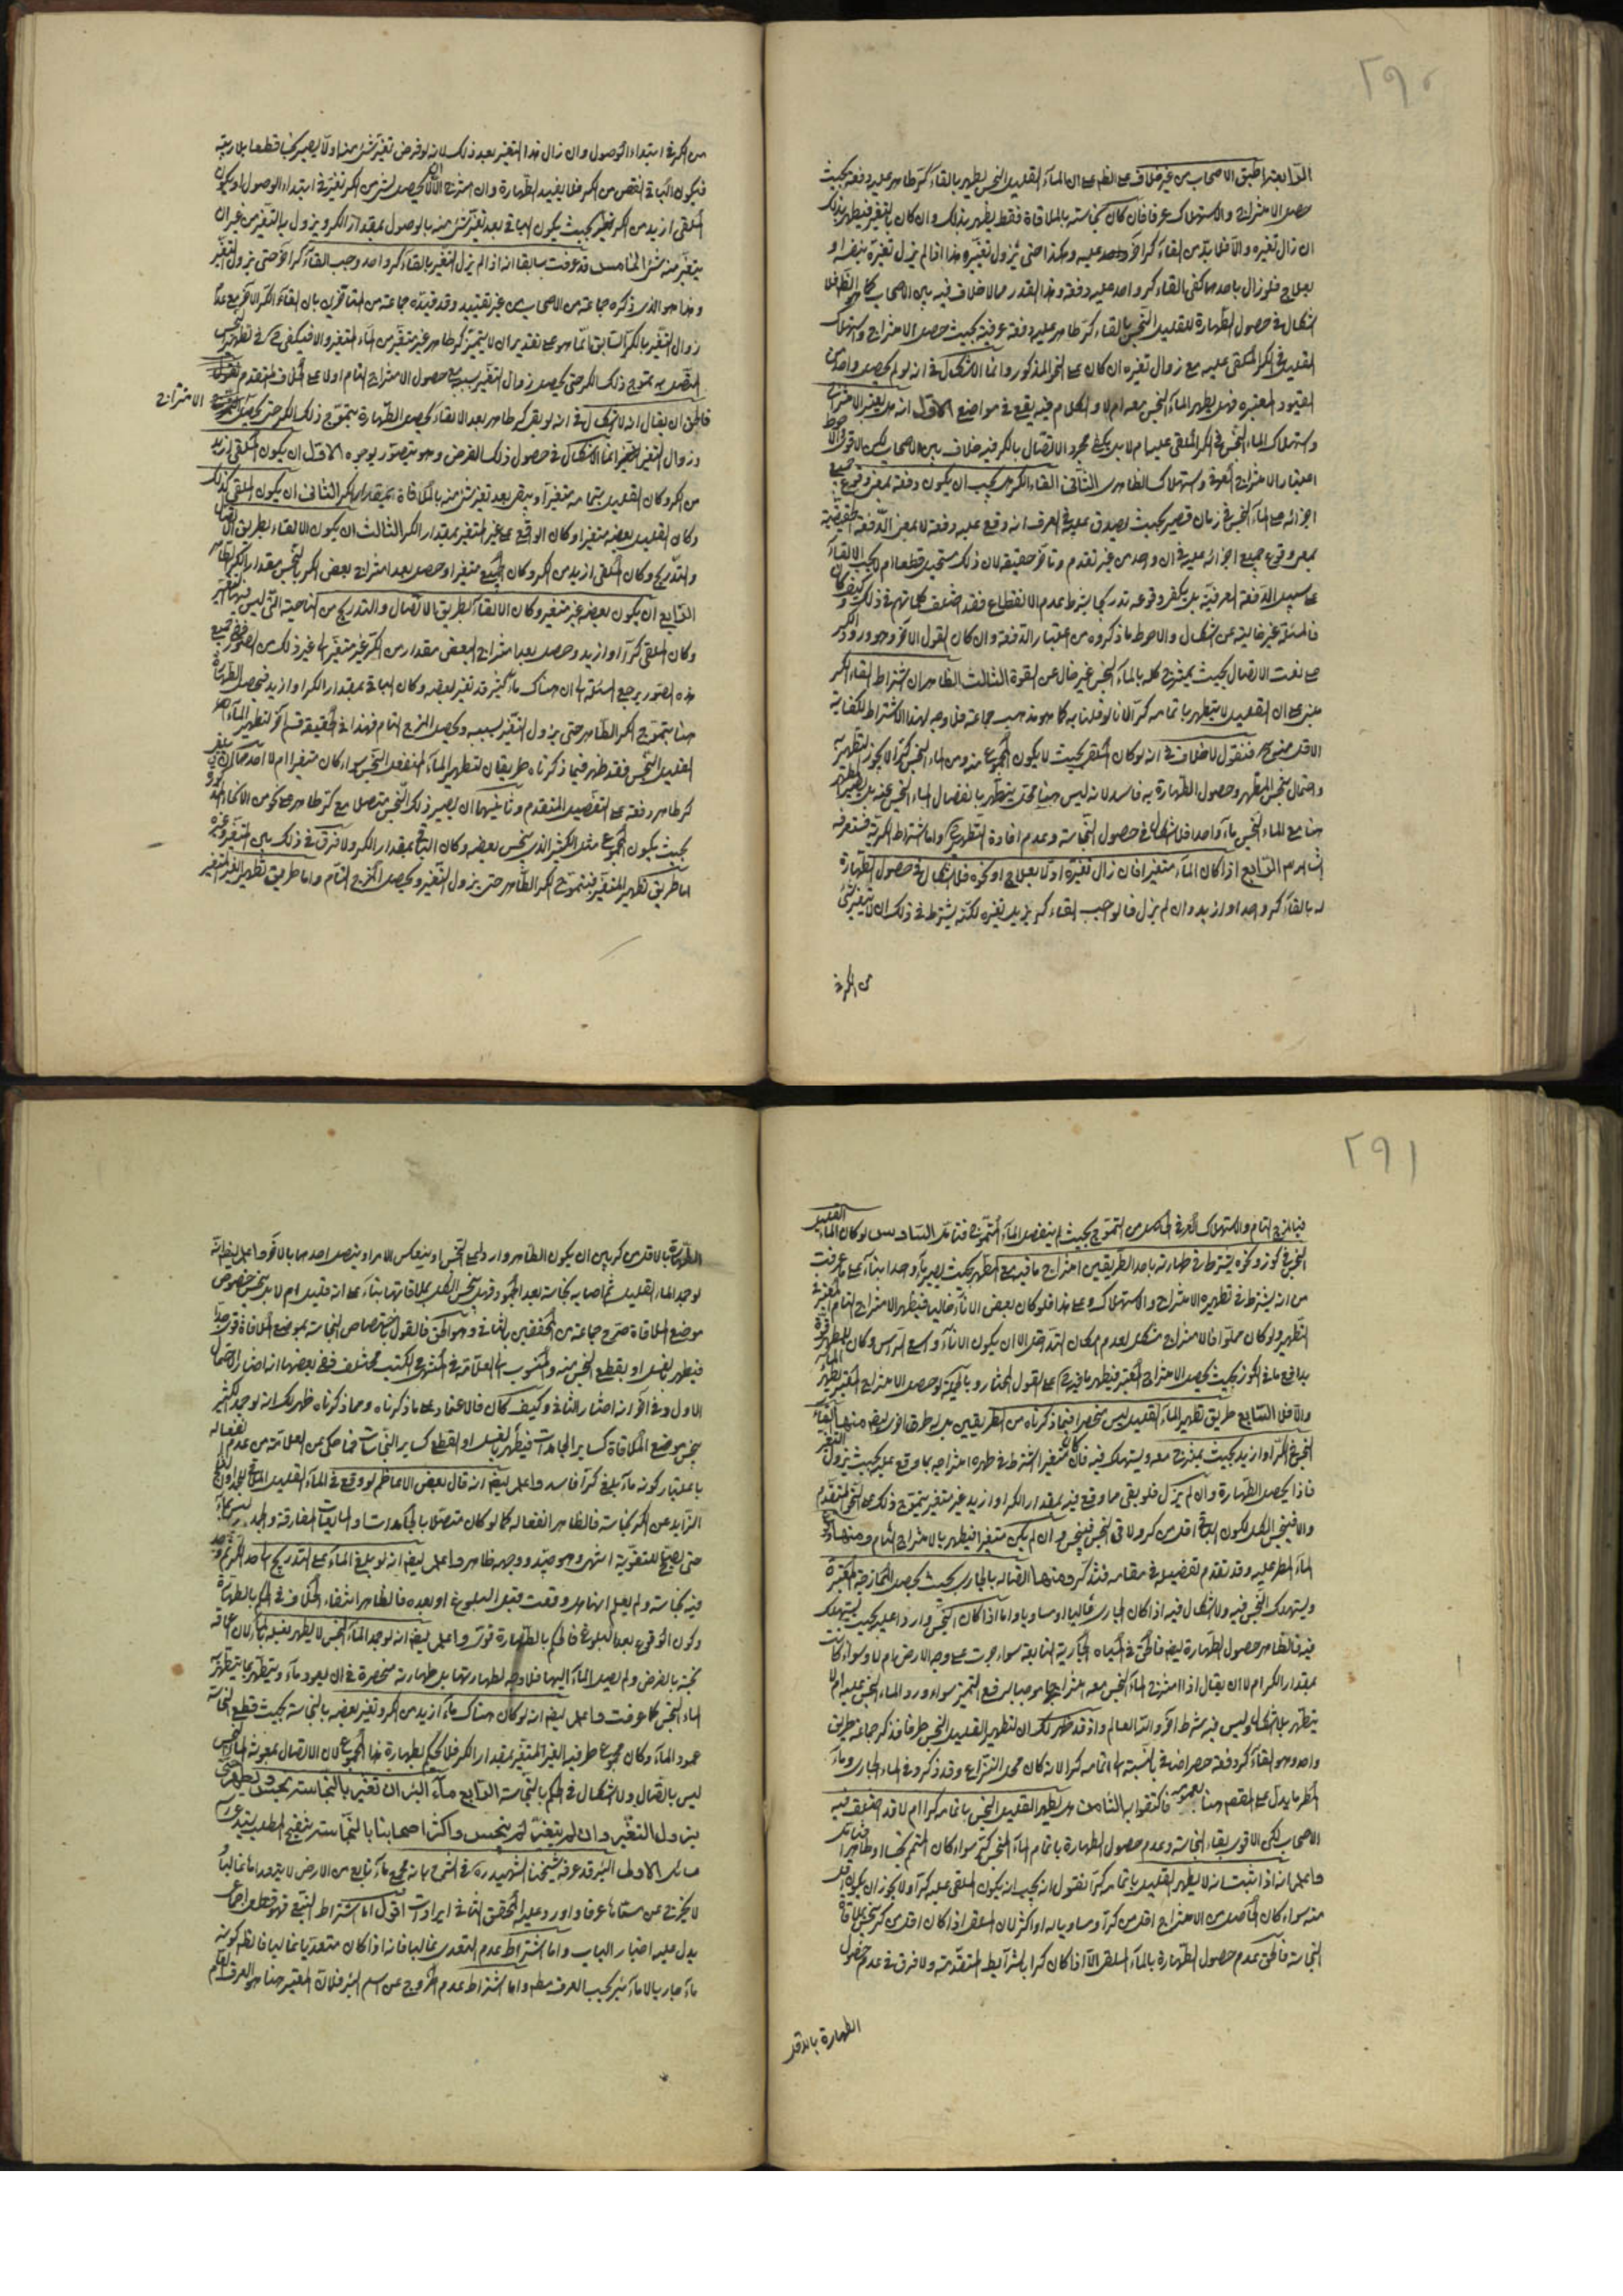 ٢٩٠
الرابعة اطبق الاصحاب من غير خلاف على الظ على ان المآء القليل النجس يطهر بالقآء كر طاهر عليه دفعة بحيث
حصل الامتزاج والاستهلاك عرفا فان كان نجاسته بالملاقاة فقط يطهر بذلك وان كان بالتغير فيطهر بذلك
ان زال تغيره والا فلا بد من القآء كر اخر عليه وهكذا حتى يزول تغيره هذا اذا لم يزل تغيره بنفسه او
بعلاج فلو زال باحدهما كفى القاء كر واحد عليه دفعة وهذا القدر مما لا خلاف فيه بين الاصحاب فلا
اشكال في حصول الطهارة للقليل النجس بالقاء كر طاهر عليه دفعة عرفية بحيث حصل الامتزاج واستهلاك
القليل في الكر الملقى عليه مع زوال تغيره ان كان على النحو المذكور وانما الاشكال في انه لو لم يحصل واحد من
القيود المعتبره فهل يطهر المآء النجس معه ام لا والكلام فيه يقع في مواضع الاول انه هل يعتبر الامتزاج
واستهلاك الماء النجس في الكر الملقى عليه ام لا بل يكفي مجرد الاتصال بالكر فيه خلاف بين الاصحاب لكن الاقوى
اعتبار الامتزاج واستهلاك الثاني القاء الكر هل يجب ان يكون دفعة بمعنى وقوع جميع
اجزائه على المآء النجس في زمان قصير بحيث يصدق عليه في العرف انه وقع عليه دفعة لا بمعنى الدفعة الحقيقية
بمعنى وقوع جميع اجزائه عليه في ان واحد من غير تقدم وتاخر حقيقة لان ذلك مستحيل قطعا ام لا يجب الالقآء
على سبيل الدفعة العرفية بل يكفي وقوعه تدريجا بشرط عدم الانقطاع فقد اختلف كلماتهم في ذلك وكيف كان
فالمسئلة غير خالية عن اشكال والاحوط ما ذكروه من اعتبار الدفعة وان كان القول الاخر وهو ورود الكر
على نعت الاتصال بحيث يمتزج كله بالمآء النجس غير خال عن القوة الثالث الظاهر ان اشتراط القاء الكر
مبني على ان القليل لا يتطهر باتمامه كرا لانا لو قلنا به كما هو مذهب جماعة فلا وجه لهذا الاشتراط لكفاية
الاقل فنقول لا خلاف في انه لو كان الملقى بحيث لا يكون المجموع منه ومن الماء النجس كرا لا يجوز التطهير به
واحتمال نجس المطهر وحصول الطهارة به فاسد لانه ليس هنا محل يتطهر بانفصال الماء النجس عنه بل يصير المطهر
هنا مع الماء النجس مآء واحدا فلا اشكال في حصول النجاسة وعدم افادة التطهير واما اشتراط الكرية فستعرفه
انشا الرابع اذا كان المآء متغيرا فان زال تغيره اولا بعلاج او نحوه فلا اشكال في حصول الطهارة
له بالقآء كر واحد او ازيد وان لم يزل فالواجب القاء كر يزيل تغيره لكنه يشترط في ذلك ان لا يتغير شئ
من الكر في
من الكر في ابتداء الوصول وان زال هذا التغير بعد ذلك لانه لو فرض تغير شئ منه اولا يصير نجسا قطعا بملاقته
فيكون الباقي انقص من الكر فلا يفيد الطهارة وان امتزج الا ان لا يحصل لشئ من الكر تغير في ابتداء الوصول او يكون
الملقى ازيد من الكر بحيث يكون الباقي بعد تغير شئ منه بالوصول بمقدار الكر ويزول به التغير من غير ان
يتغير منه شئ الخامس قد عرفت سابقا انه اذا لم يزل التغير بالقآء كر واحد وجب القآء كر اخر حتى يزول التغير
وهذا هو الذي ذكره جماعة من الاصحاب من غير تقييد وقد قيده جماعة من المتاخرين بان القآء الكر الاخر مع عدم
زوال التغير بالكر السابق انما هو على تقدير ان لا يتميز كر طاهر غير متغير من المآء المتغير والا فيكفي في تطهير النجس
المتصل به تموج ذلك الكر حتى يحصل زوال التغير بسببه مع حصول الامتزاج التام اولا على الخلاف المتقدم
فالحق ان يقال انه لا اشكال في انه لو بقي كر طاهر بعد الالقآء يحصل الطهارة بتموج ذلك الكر حتى يحصل الامتزاج
وزوال التغير انما الاشكال في حصول ذلك الفرض وهو يتصور بوجوه الاول ان يكون الملقى ازيد
من الكر وكان القليل بتمامه متغيرا ويبقى بعد تغير شئ منه بالملاقاة بمقدار الكر الثاني ان يكون الملقى كذلك
وكان القليل بعضه متغيرا وكان الواقع على غير المتغير بمقدار الكر الثالث ان يكون الالقاء بطريق الاتصال
والتدريج وكان الملقى ازيد من الكر وكان الجميع متغيرا وحصل بعد امتزاج بعض الكر بالنجس مقدار الكر
الرابع ان يكون بعضه غير متغير وكان الالقآء بطريق الاتصال والتدريج من الناحية التي ليس فيها تغير
وكان الملقى كرا او ازيد وحصل بعد امتزاج البعض مقدار من الكر غير متغير الى غير ذلك من الصور ففي جميع
هذه الصور يرجع المسئلة الى ان هناك مآء كثير قد تغير بعضه وكان الباقي بمقدار الكر او ازيد فتحصل الطهارة
هنا بتموج الكر الطاهر حتى يزول التغير بسببه ويحصل المزج التام فهذا في الحقيقة قسم اخر لتطهير المآء
القليل النجس فقد ظهر فيما ذكرناه طريقان لتطهير المآء المنفعل النجس سواء كان متغيرا ام لا احدهما القاء
كر طاهر دفعة على التفصيل المتقدم وثانيهما ان يصير ذلك النجس متصلا مع كر طاهر على نحو من الانحاء
بحيث يكون المجموع مثل الكثير الذي نجس بعضه وكان الباقي بمقدار الكر ولا فرق في ذلك بين المتغير وغيره
اما طريق تطهير المتغير فبتموج الكر الطاهر حتى يزول التغير ويحصل المزج التام واما طريق تطهير الغير المتغير
٢٩١
فبالمزج التام والاستهلاك العرفي الحاصل من التموج بحيث لم ينفصل المآء السادس لو كان الماء القليل
النجس في كوز ونحوه يشترط في طهارته باحد الطريقين امتزاج ما فيه مع المطهر بحيث يصير مآء واحدا بنآء على ما عرفت
من انه يشترط في تطهيره الامتزاج والاستهلاك وعلى هذا فلو كان بعض الانآء خاليا فيظهر الامتزاج التام المعتبر في
التطهير ولو كان مملوا فالامتزاج مشكل لعدم امكان التداخل الا ان يكون الانآء واسع الراس وكان للمطهر قوة
يدافع ما في الكوز بحيث يحصل الامتزاج المعتبر فيطهر ما فيه على القول المختار وبالجملة لو حصل الامتزاج المعتبر يطهر
والا فلا السابع طريق تطهير المآء القليل ليس منحصرا فيما ذكرناه من الطريقين بل له طرق اخرى ايض منها القآء
النجس في الكر او ازيد بحيث يمتزج معه ويستهلك فيه فان كان متغيرا اشترط في طهره امتزاجه بما وقع عليه بحيث يزول التغير
فاذا يحصل الطهارة وان لم يزل فلو بقي مما وقع فيه بمقدار الكر او ازيد غير متغير يتموج ذلك على النحو المتقدم
والا فينجس الكل لكون الباقي اقل من كر ولاقى النجس فينجس وان لم يكن متغيرا فيطهر بالامتزاج التام ومنها وقوع
المآء المطر عليه وقد تقدم تفصيله في مقامه فتذكر ومنها اتصاله بالجاري بحيث يحصل الممازجة المعتبرة
ويستهلك النجس فيه ولا اشكال فيه اذا كان الجاري عاليا او مساويا واما اذا كان النجس واردا عليه بحيث يستهلك
فيه فالظاهر حصول الطهارة ايض فالحق في المياه الجارية النابعة سواء جرت على وجه الارض ام لا وسواء كانت
بمقدار الكر ام لا ان يقال اذا امتزج المآء النجس معه امتزاجا موجبا لرفع التميز سواء ورد الماء النجس عليه ام لا
يتطهر بلا اشكال وليس فيه شرط اخر والله العالم واذ قد ظهر لك ان لتطهير القليل النجس طرقا فذكر جماعة طريق
واحد وهو القآء كر دفعة حصر اضافي بالنسبة الى اتمامه كرا لانه كان محل النزاع وقد ذكروا في الماء الجاري ومآء
المطر ما يدل على المقص هنا بعمومه فاكتفوا به الثامن هل يطهر القليل النجس باتمامه كرا ام لا قد اختلف فيه
الاصحاب لكن الاقوى بقاء النجاسة وعدم حصول الطهارة باتمام المآء النجس كرا سواء كان المتمم نجسا او طاهرا
واعلم انه اذا ثبت انه لا يطهر القليل باتمامه كرا نقول انه يجب ان يكون الملقى عليه كرا ولا يجوز ان يكون اقل
منه سواء كان الحاصل من الامتزاج اقل من كر او مساويا له او اكثر لان الملقى اذا كان اقل من كر ينجس بملاقاة
النجاسة فالحق عدم حصول الطهارة بالمآء الملقى الا اذا كان كرا بالشرائط المتقدمة ولا فرق في عدم حصول
الطهارة بالاقل
الطهارة بالاقل من كر بين ان يكون الطاهر واردا على النجس او ينعكس الامر او يتصل احدهما بالاخر واعلم ايض انه
لو جمد الماء القليل ثم اصابه نجاسة بعد الجمود فهل ينجس الكل بملاقاتها بناء على انه قليل ام لا بل ينجس خصوص
موضع الملاقاة صرح جماعة من المحققين بالثاني وهو الحق فالقول باختصاص النجاسة بموضع الملاقاة قوي جدا
فيطهر بالغسل او بقطع النجس منه والمنسوب الى العلامة في المنتهى الكتب مختلف ففي بعضها انه اختار الاحتمال
الاول وفي اخر انه اختار الثاني وكيف كان فالاعتماد على ما ذكرناه ومما ذكرناه ظهر لك انه لو جمد الكثير
ينجس موضع الملاقاة كساير الجامدات فيطهر بالغسل او القطع كساير النجاسات فما حكي عن العلامة من عدم انفعاله
باعتبار كونه مآء بلغ كرا فاسد واعلم ايض انه قال بعض الاعاظم لو وقع في المآء القليل
الزايد عن الكر نجاسة فالظاهر انفعاله كما لو كان متصلا بالجامدات والمايعات المفارقة والجمد ليس بمآء
حتى يصلح للتقوية انتهى وهو جيد ووجهه ظاهر واعلم ايض انه لو بلغ الماء على التدريج الى حد الكر ثم وجد
فيه نجاسة ولم يعلم انها هل وقعت قبل البلوغ او بعده فالظاهر انتفاء الخلاف في الحكم بالطهارة
وكون الوقوع بعد البلوغ فالحكم بالطهارة قوي واعلم ايض انه لو جمد المآء النجس لا يطهر بغسله بمآء لان
نجسة بالفرض ولم يصل المآء اليها فلا وجه لطهارتها بل طهارته منحصرة في ان يعود مآء ويتطهر بما يتطهر به
الماء النجس كما عرفت واعلم ايض انه لو كان هناك مآء ازيد من الكر وتغير بعضه بالنجاسة بحيث قطع النجاسة
عمود المآء وكان مجموع طرفيه الغير المتغير بمقدار الكر فلا يحكم بطهارة هذا المجموع لان الاتصال بمعونة النجس
ليس باتصال ولا اشكال في الحكم بالنجاسة الرابع ماء البئر ان تغير بالنجاسة نجس ويطهر
بزوال التغير وان لم يتغير لم ينجس واكثر اصحابنا بالنجاسة تنقيح المطلب يتم
مسائل الاولى البئر قد عرفه شيخنا الشهيد ره في الشرح بانه مجمع مآء نابع من الارض لا يتعداها غالبا
لا يخرج عن مسماها عرفا واورد عليه المحقق الثاني ايرادات اقول اما اشتراط النبع فهو قطعي
يدل عليه اخبار الباب واما اشتراط عدم التعدي غالبا فانه اذا كان متعديا غالبا فالظ كونه
مآء جاريا لا مآء بئر بحسب العرف مط واما اشتراط عدم الخروج عن اسم البئر فلان المعتبر هنا هو العرف العام